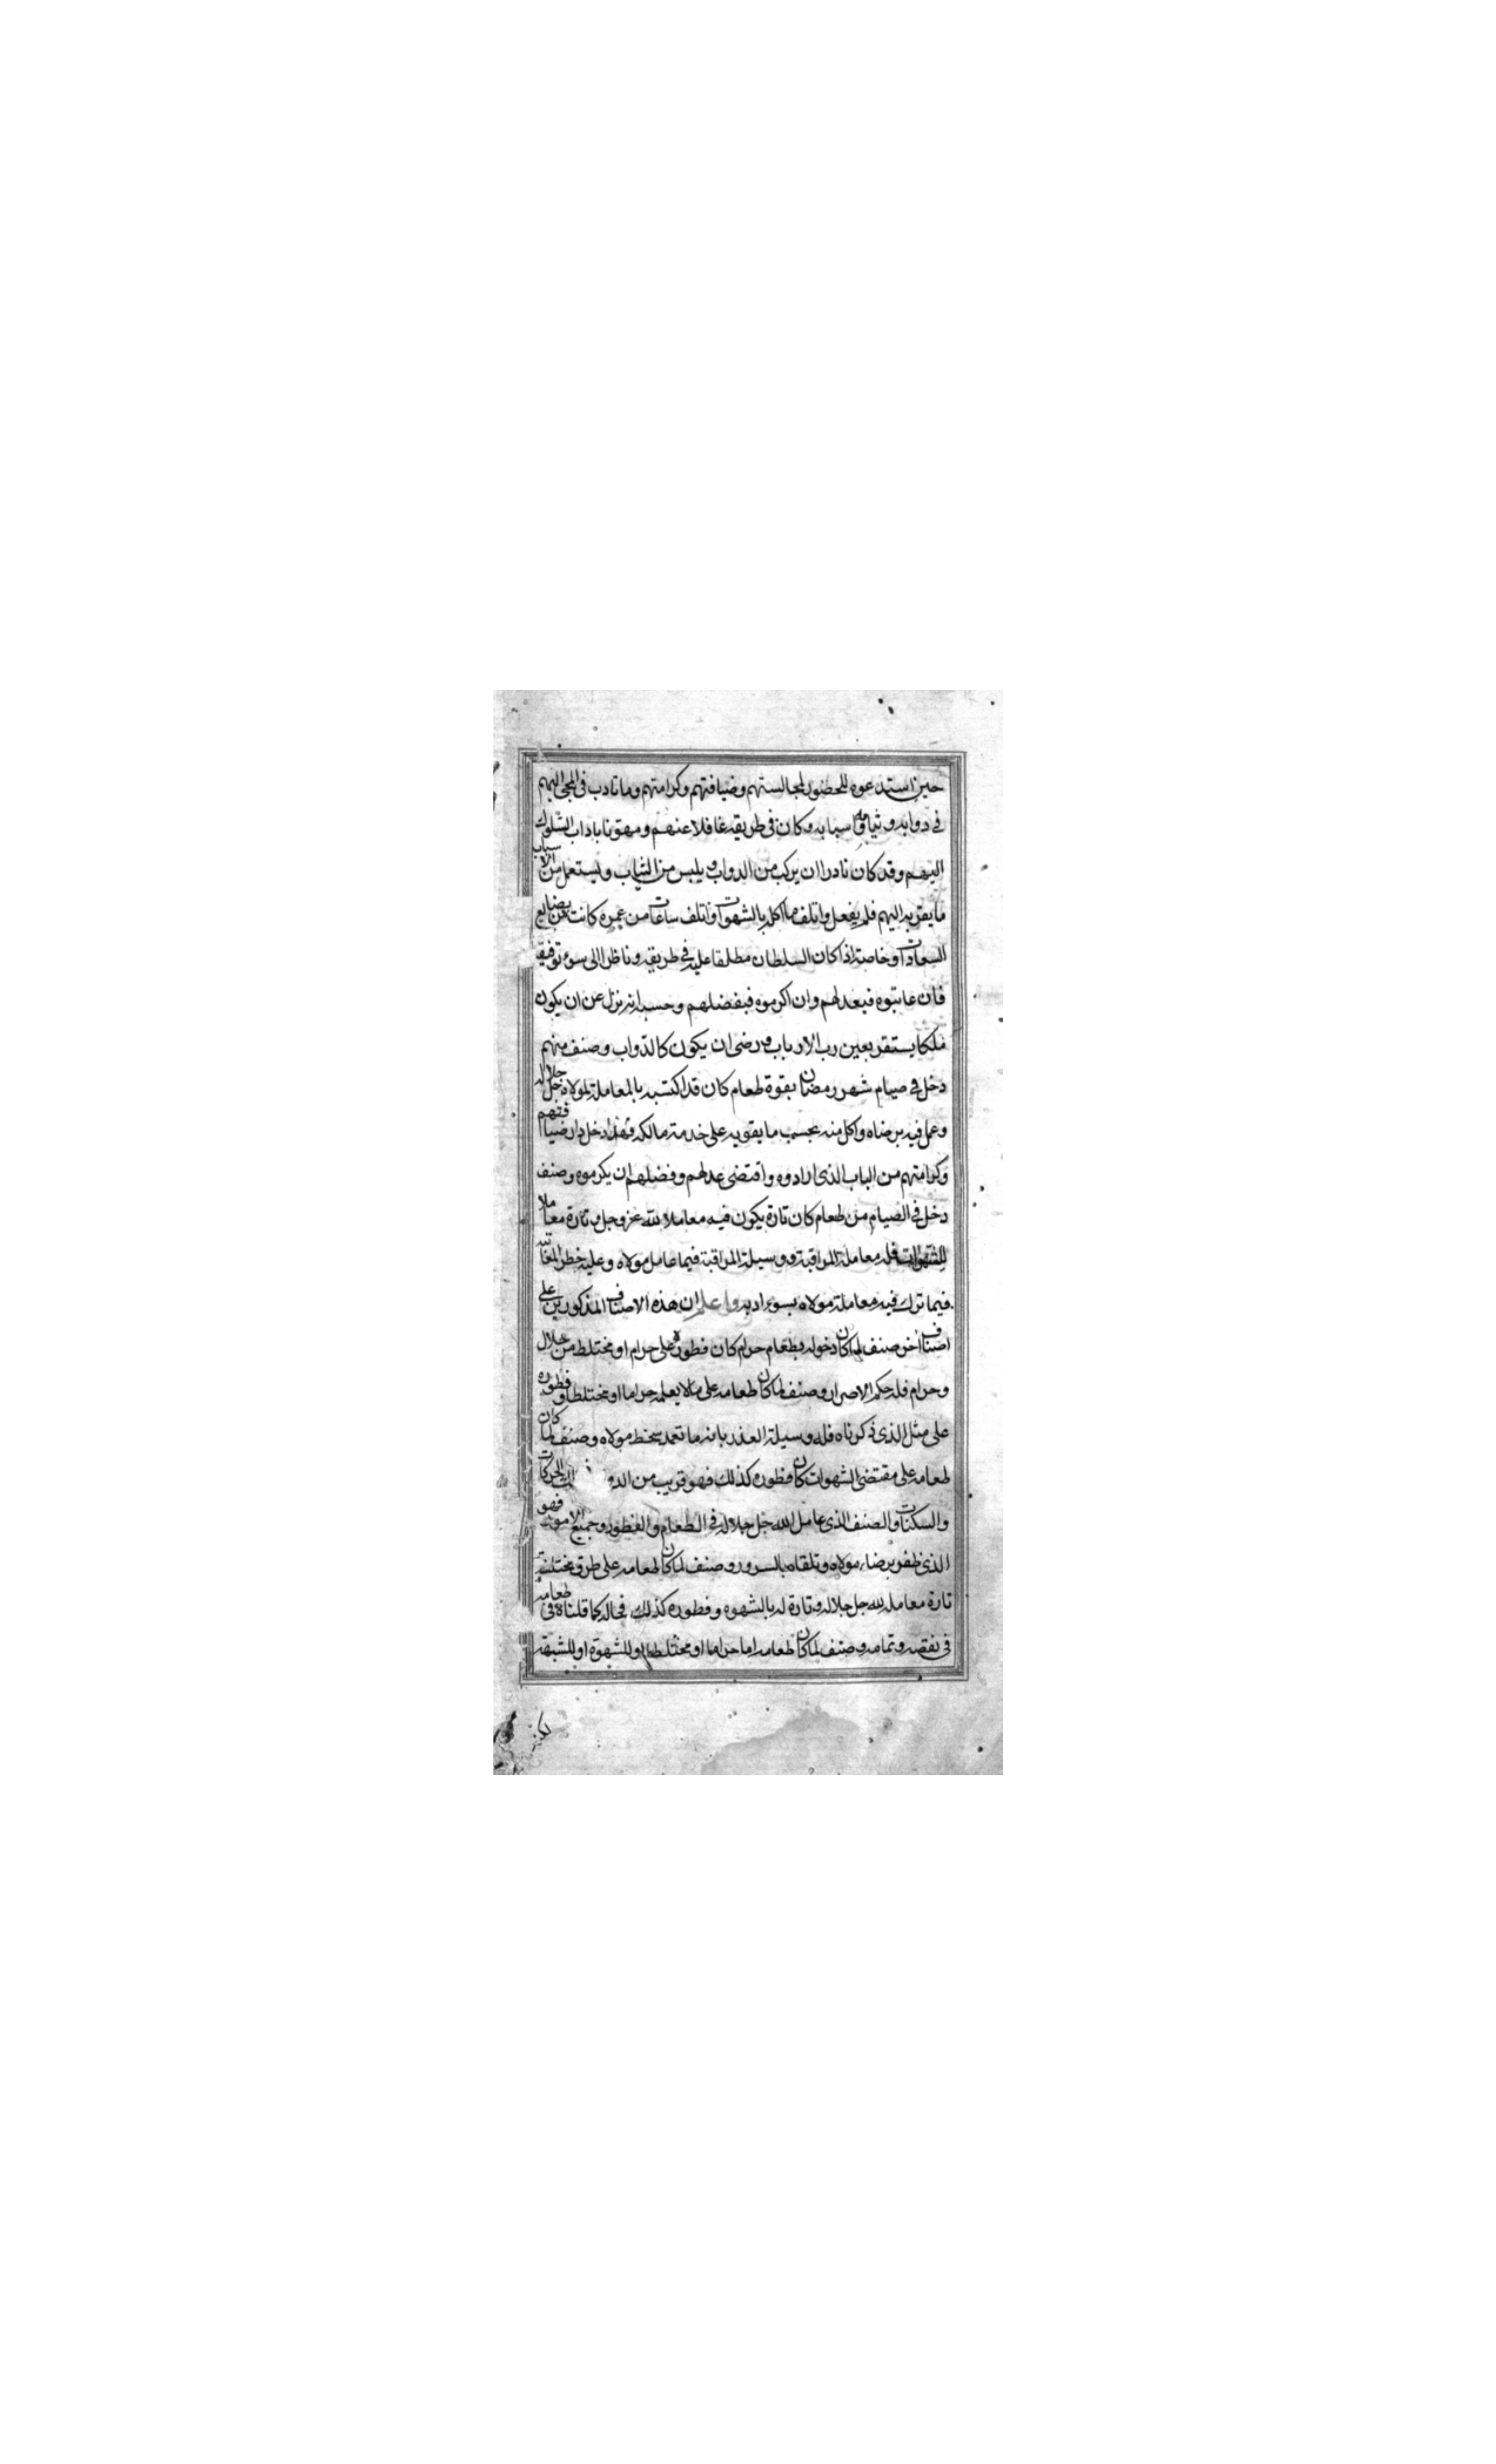 حين استدعوه للحضور لمجالستهم وضيافتهم وكرامتهم وما تادب في المجئ اليهم
في دوابه وثيابه واسبابه وكان في طريقه غافلا عنهم ومهونا باداب السلوك
اليهم وقد كان نادرا ان يركب من الدواب ويلبس من الثياب ويستعمل من الاسباب
ما يقربه اليهم فلم يفعل واتلف ما اكله بالشهوات واتلف ساعات من عمره كانت من بضايع
السعادات وخاصة اذا كان السلطان مطلقا عليه في طريقه وناظرا الى سوء توفيقه
فان عاتبوه فبعدلهم وان اكرموه فبفضلهم وحسبه انه نزل عن ان يكون
ملكا يستقر بعين رب الارباب ورضى ان يكون كالدواب وصنف منهم
دخل في صيام شهر رمضان بقوة طعام كان قد اكتسبه بالمعاملة لمولاه جل جلاله
وعمل فيه برضاه واكل منه بحسب ما يقويه على خدمة مالكه فهذا دخل دار ضيافتهم
وكرامتهم من الباب الذى ارادوه واقتضى عدلهم وفضلهم ان يكرموه وصنف
دخل في الصيام من طعام كان تارة يكون فيه معاملا لله عز وجل وتارة معاملا
للشهوات فله معاملة المراقبة ووسيلة المراقبة فيما عامل مولاه وعليه خطر المعاتبة
فيما ترك فيه معاملة مولاه بسوء ادبه واعلم ان هذه الاصناف المذكورين على
اصناف اخر صنف لما كان دخوله بطعام حرام كان فطوره على حرام او مختلط من حلال
وحرام فله حكم الاصرار وصنف لما كان طعامه على ما لا يعلمه حراما او مختلطا وفطوره
على مثل الذى ذكرناه فله وسيلة العذر بانه ما تعمد سخط مولاه وصنف لما كان
طعامه على مقتضى الشهوات كان فطوره كذلك فهو قريب من الدو الحركات
والسكنات والصنف الذى عامل الله جل جلاله في الطعام والفطور وجميع الامور فهو
الذى ظفر برضاء مولاه وتلقاه بالسرور وصنف لما كان طعامه على طرق مختلفة
تارة معاملة لله جل جلاله وتارة له بالشهوه وفطوره كذلك فحاله كما قلناه في طعامه
في نقصه وتمامه وصنف لما كان طعامه اما حراما او مختلطا او للشهوة او للشبهة
لكنه